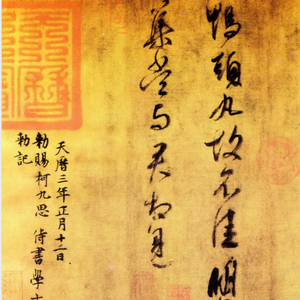 鴨頭丸故不佳明
集當与君相見
天曆三年正月十二日
勅賜柯九思侍書學
勅記